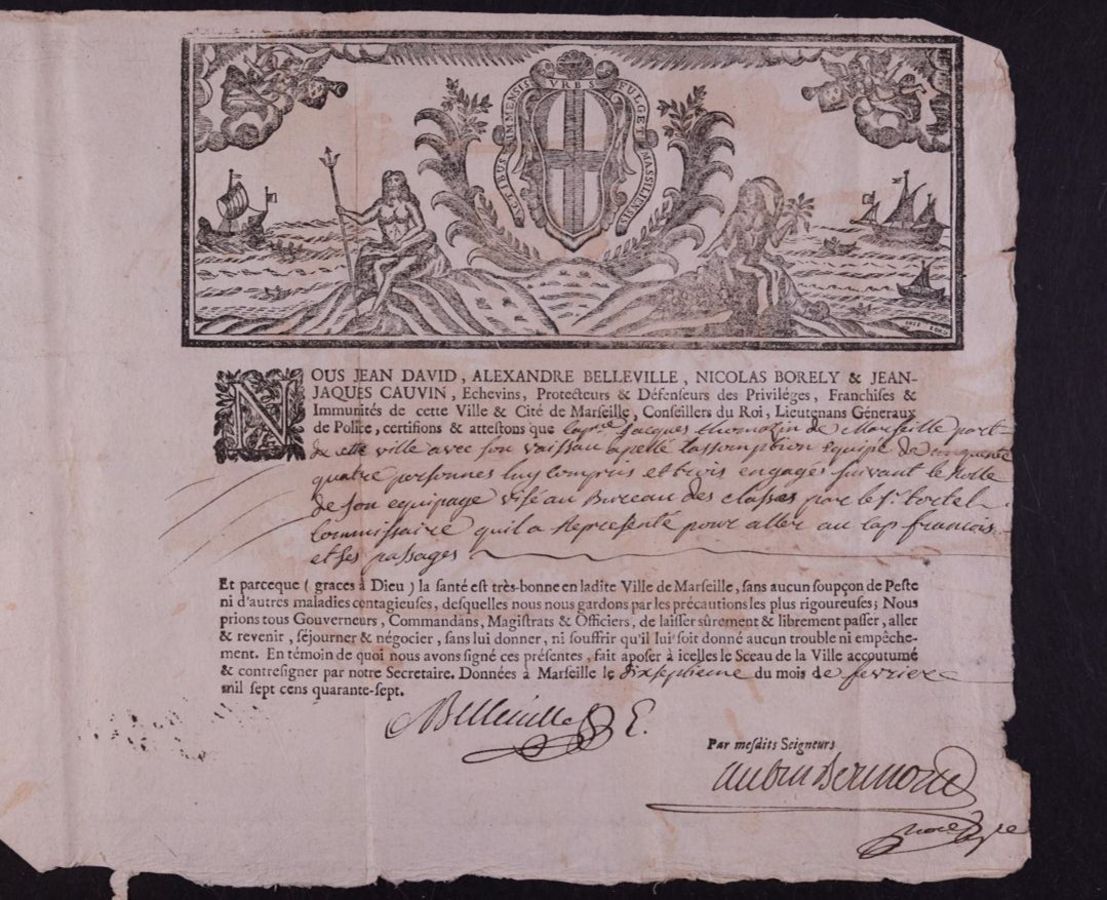 ACTIBUS IMMENSIS VRBS FULGET MASSILIENSIS
NOUS JEAN DAVID, ALEXANDRE BELLEVILLE, NICOLAS BORELY & JEAN-
JAQUES CAUVIN, Echevins, Protecteurs & Défenseurs des Priviléges, Franchises &
Immunités de cette Ville & Cité de Marseille, Conseillers du Roi, Lieutenans Géneraux
de Police, certifions & attestons que Jacques de Marseille part
de cette ville avec son vaisseau apellé lassomption equipé de cinquante
quatre personnes luy compris et trois engages suivant le Rolle
de son equipage visé au Bureau des classes par le Sr.
Commissaire quil a Represente pour aller au Cap francois
et ses passages
Et parceque ( graces à Dieu ) la santé est très-bonne en ladite Ville de Marseille, sans aucun soupçon de Peste
ni d'autres maladies contagieuses, desquelles nous nous gardons par les précautions les plus rigoureuses; Nous
prions tous Gouverneurs, Commandans, Magistrats & Officiers, de laisser sûrement & librement passer, aller
& revenir, séjourner & négocier, sans lui donner, ni souffrir qu'il lui soit donné aucun trouble ni empêche-
ment. En témoin de quoi nous avons signé ces présentes, fait aposer à icelles le Sceau de la Ville accoutumé
& contresigner par notre Secretaire. Données à Marseille le dixseptieme du mois de fevrier
mil sept cens quarante-sept.
Belleville E.
Par mesdits Seigneurs